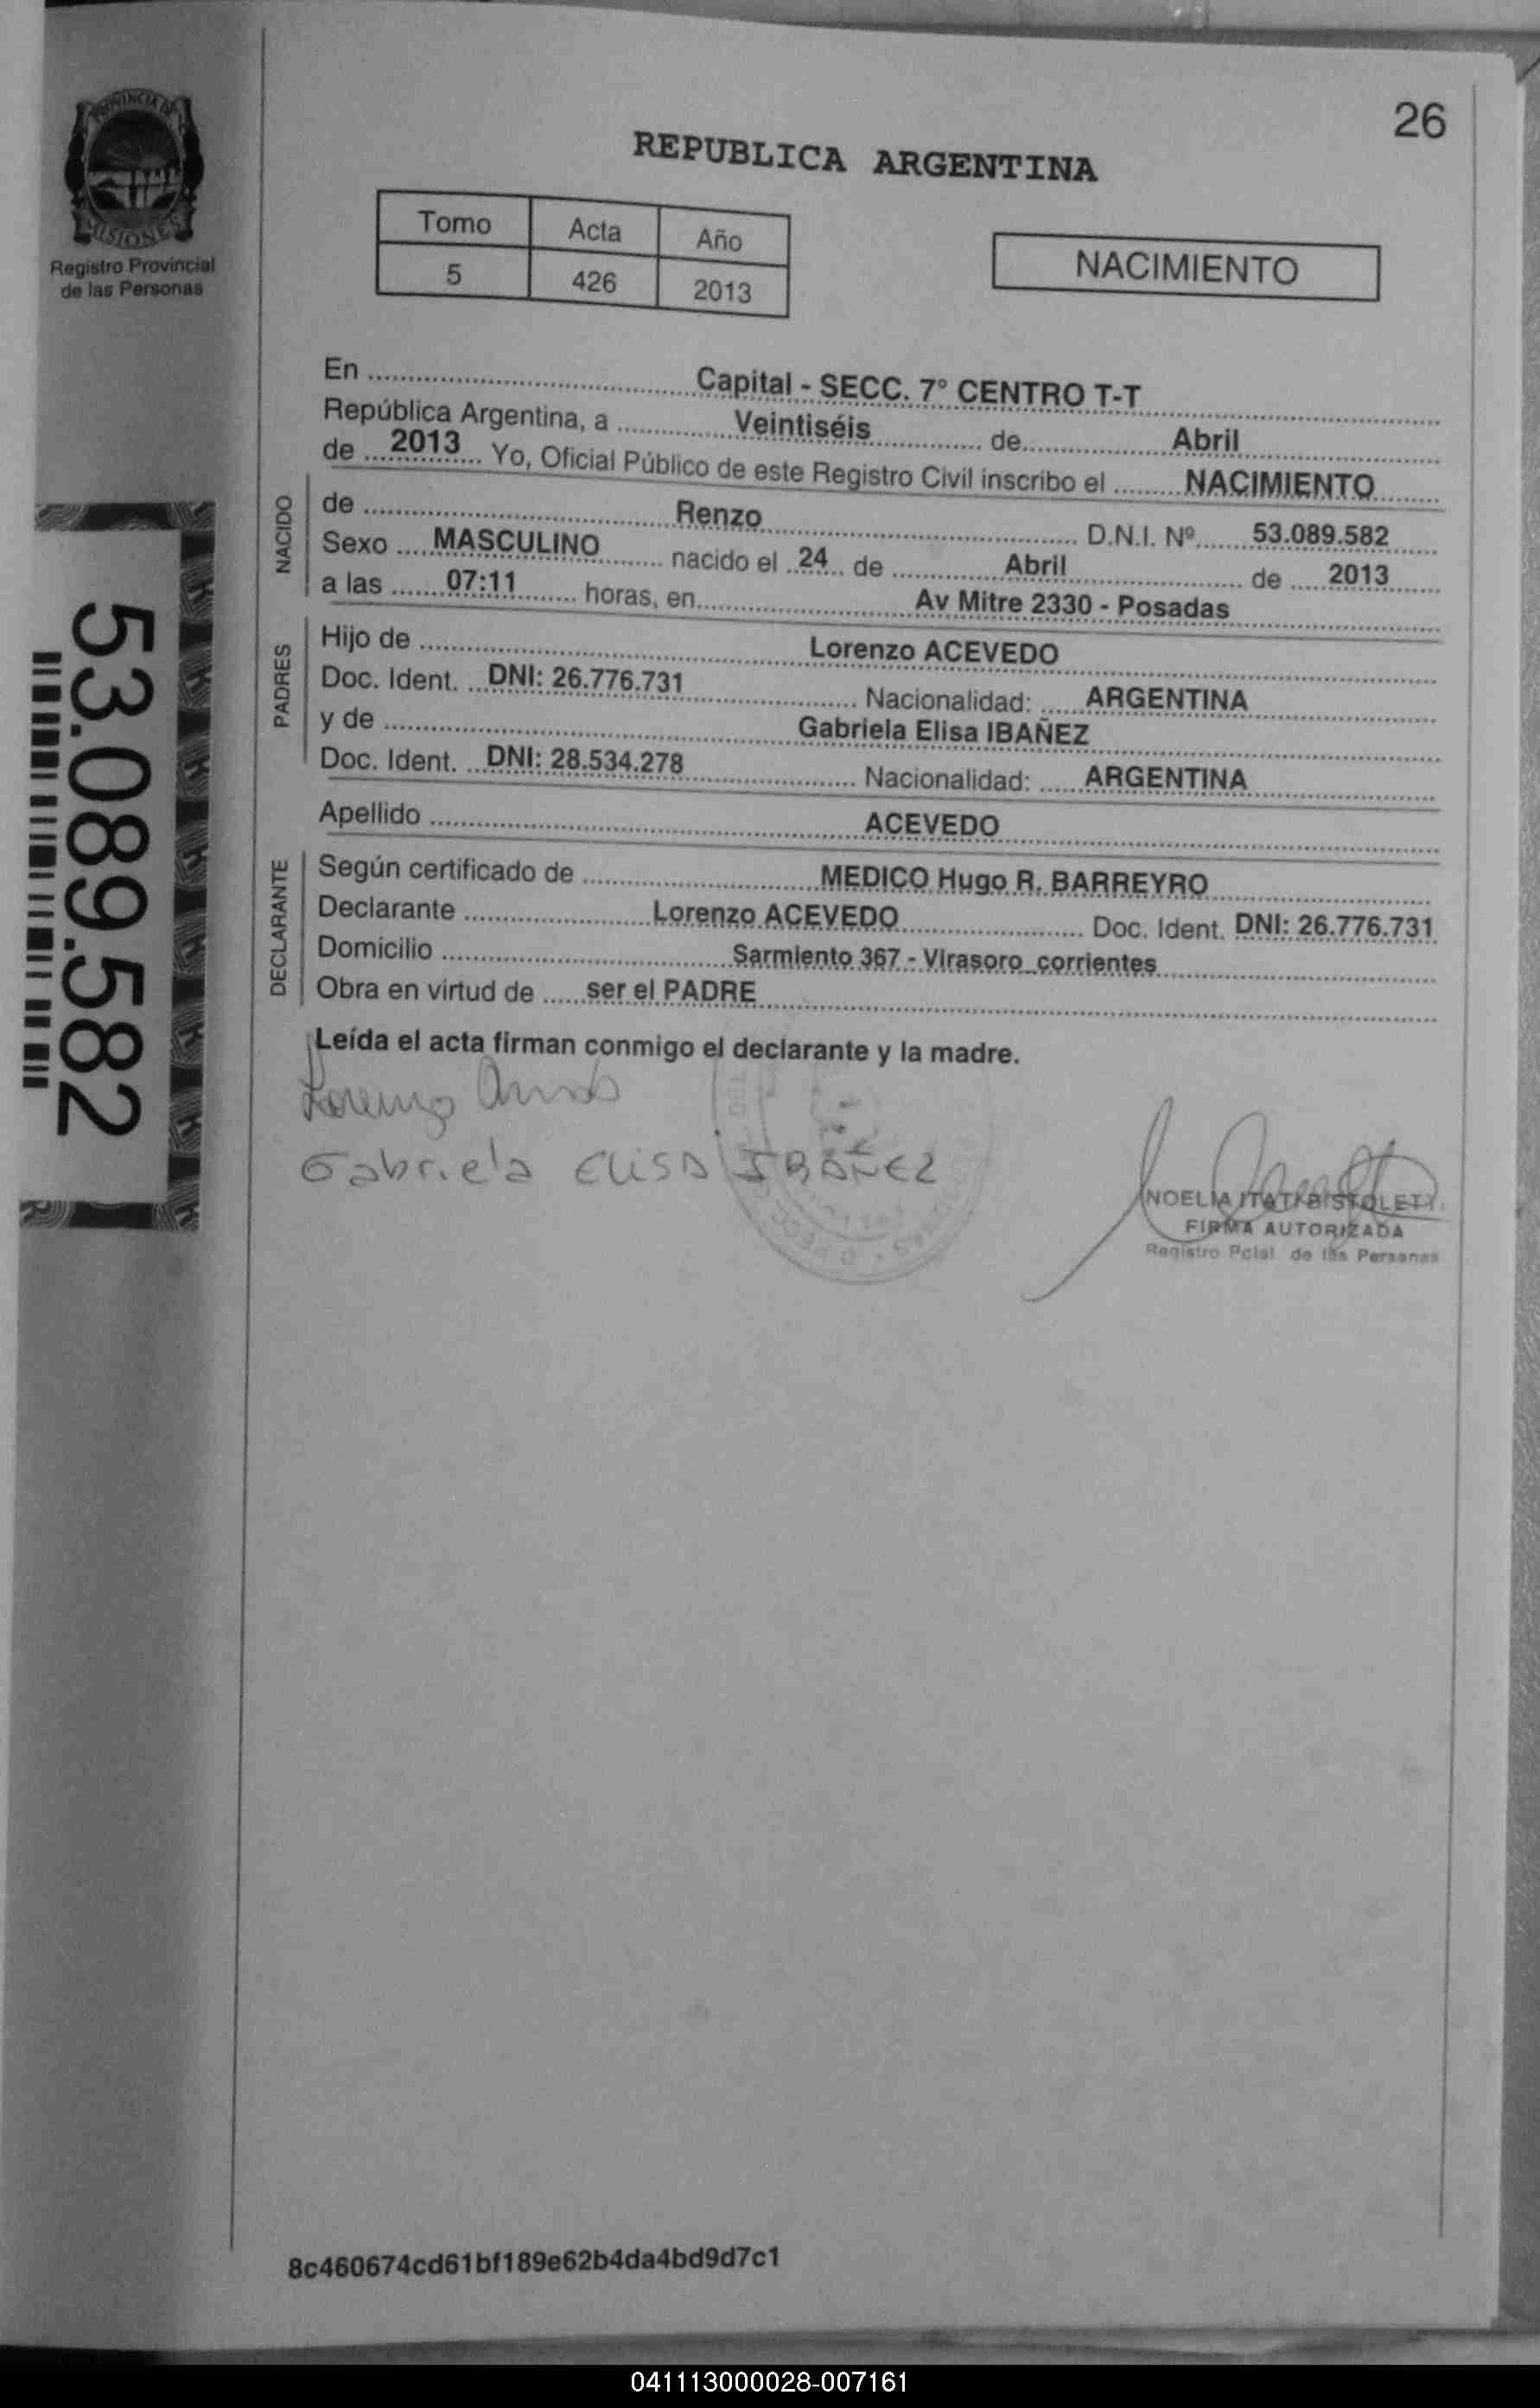 26
PROVINCIA DE
MISIONES
Registro Provincial
de las Personas
REPUBLICA ARGENTINA
Tomo Acta Año
5 426 2013
NACIMIENTO
En Capital - SECC. 7° CENTRO T-T
República Argentina, a Veintiséis de Abril
de 2013 Yo, Oficial Público de este Registro Civil inscribo el NACIMIENTO
NACIDO
de Renzo D.N.I. Nº 53.089.582
Sexo MASCULINO nacido el 24 de Abril de 2013
a las 07:11 horas, en Av Mitre 2330 - Posadas
PADRES
Hijo de Lorenzo ACEVEDO
Doc. Ident. DNI: 26.776.731 Nacionalidad: ARGENTINA
y de Gabriela Elisa IBAÑEZ
Doc. Ident. DNI: 28.534.278 Nacionalidad: ARGENTINA
Apellido ACEVEDO
DECLARANTE
Según certificado de MEDICO Hugo R. BARREYRO
Declarante Lorenzo ACEVEDO Doc. Ident. DNI: 26.776.731
Domicilio Sarmiento 367 - Virasoro corrientes
Obra en virtud de ser el PADRE
Leída el acta firman conmigo el declarante y la madre.
Lorenzo
Gabriela ELISA IBAÑEZ
NOELIA ITATI
FIRMA AUTORIZADA
Registro Pcial. de las Personas
53.089.582
8c460674cd61bf189e62b4da4bd9d7c1
041113000028-007161